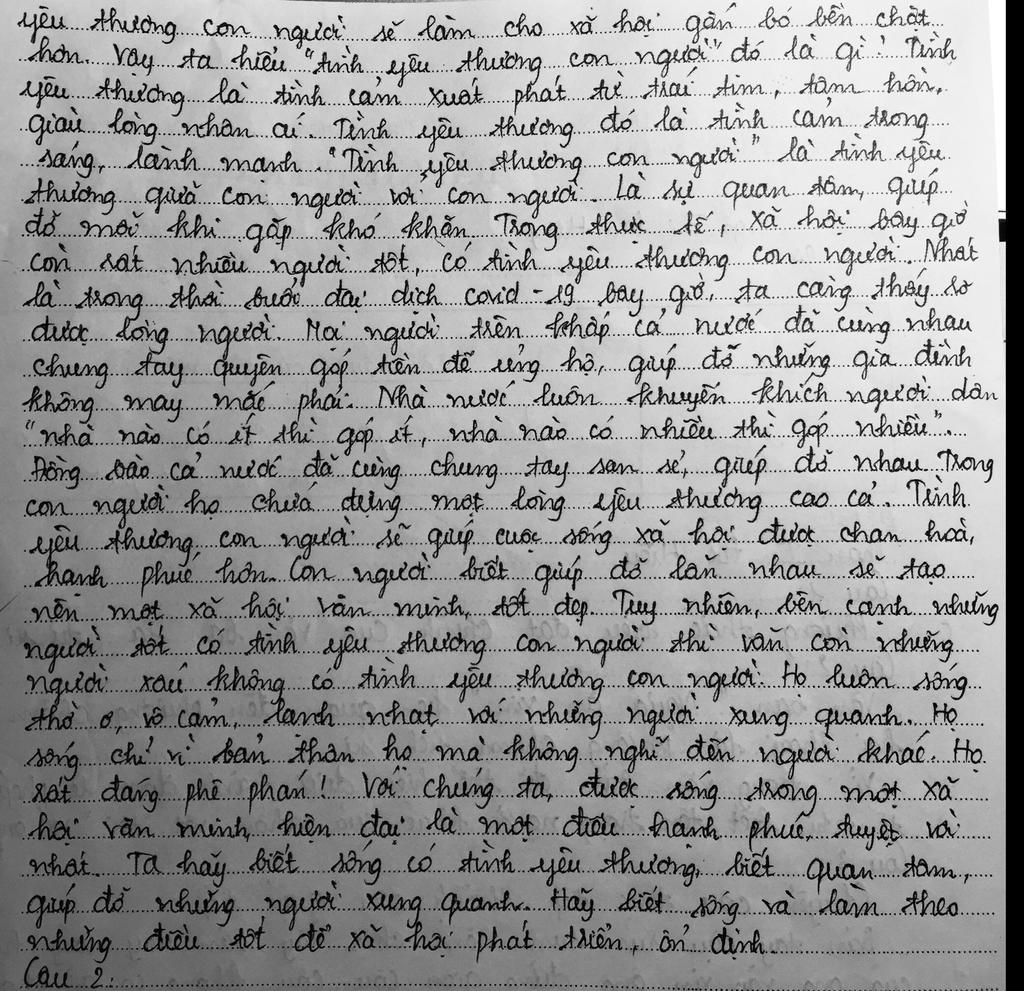 yêu thương con người sẽ làm cho xã hội gắn bó bền chặt
hơn. Vậy ta hiểu "tình yêu thương con người" đó là gì? Tình
yêu thương là tình cảm xuất phát từ trái tim, tâm hồn,
giàu lòng nhân ái. Tình yêu thương đó là tình cảm trong
sáng, lành mạnh. "Tình yêu thương con người" là tình yêu
thương giữa con người với con người. Là sự quan tâm, giúp
đỡ mỗi khi gặp khó khăn. Trong thực tế, xã hội bây giờ
còn rất nhiều người tốt, có tình yêu thương con người. Nhất
là trong thời buổi đại dịch covid-19 bây giờ, ta càng thấy rõ
được lòng người. Mọi người trên khắp cả nước đã cùng nhau
chung tay quyên góp tiền để ủng hộ, giúp đỡ những gia đình
không may mắc phải. Nhà nước luôn khuyến khích người dân
"nhà nào có ít thì góp ít, nhà nào có nhiều thì góp nhiều".
Đồng bào cả nước đã cùng chung tay san sẻ, giúp đỡ nhau. Trong
con người họ chứa đựng một lòng yêu thương cao cả. Tình
yêu thương con người sẽ giúp cuộc sống xã hội được chan hoà,
hạnh phúc hơn. Con người biết giúp đỡ lẫn nhau sẽ tạo
nên một xã hội văn minh, tốt đẹp. Tuy nhiên, bên cạnh những
người tốt có tình yêu thương con người thì vẫn còn những
người xấu không có tình yêu thương con người. Họ luôn sống
thờ ơ, vô cảm, lạnh nhạt với những người xung quanh. Họ
sống chỉ vì bản thân họ mà không nghĩ đến người khác. Họ
rất đáng phê phán! Với chúng ta, được sống trong một xã
hội văn minh, hiện đại là một điều hạnh phúc, tuyệt vời
nhất. Ta hãy biết sống có tình yêu thương, biết quan tâm,
giúp đỡ những người xung quanh. Hãy biết sống và làm theo
những điều tốt để xã hội phát triển, ổn định.
Câu 2: